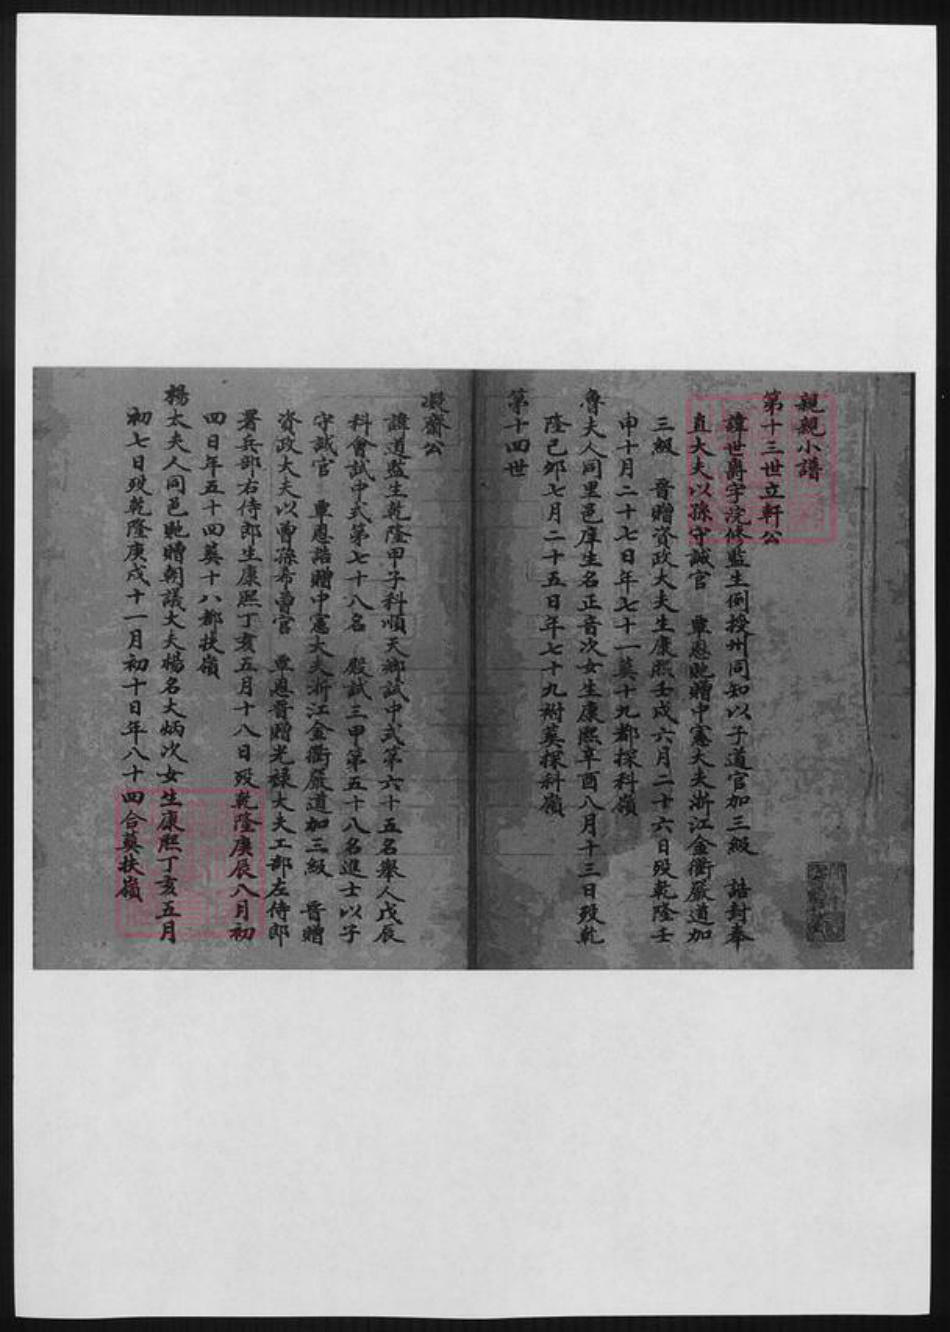 親親小譜
第十三世立軒公
諱世爵字浣修監生例授州同知以子道官加三級　誥封奉
直大夫以孫守誠官　覃恩貤贈中憲大夫浙江金衢嚴道加
三級　晉贈資政大夫生康熙壬戌六月二十六日歿乾隆壬
申十月二十七日年七十一葬十九都探科嶺
魯夫人同里邑庠生名正音次女生康熙辛酉八月十三日歿乾
隆己卯七月二十五日年七十九祔葬探科嶺
第十四世
凝齋公
諱道監生乾隆甲子科順天鄉試中式第六十五名舉人戊辰
科會試中式第七十八名　殿試三甲第五十八名進士以子
守誠官　覃恩誥贈中憲大夫浙江金衢嚴道加三級　晉贈
資政大夫以曾孫希曾官　覃恩晉贈光祿大夫工部左侍郎
署兵部右侍郎生康熙丁亥五月十八日歿乾隆庚辰八月初
四日年五十四葬十八都扶嶺
楊太夫人同邑貤贈朝議大夫楊名大炳次女生康熙丁亥五月
初七日歿乾隆庚戌十一月初十日年八十四合葬扶嶺